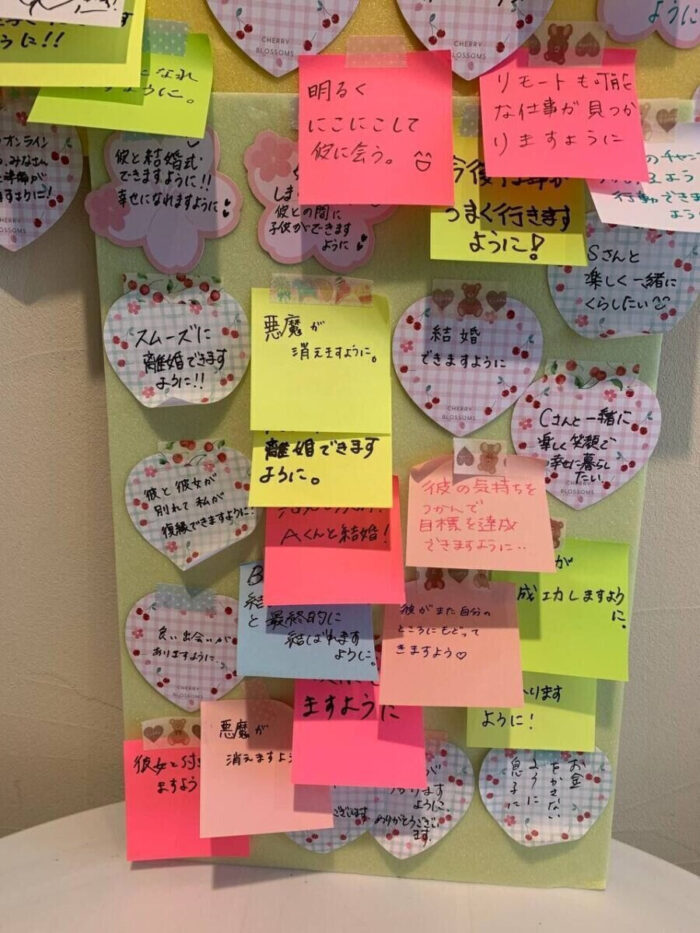 うに!!
CHERRY
BLOSSOMS
CHERRY
ように
なれ
ように。
明るく
にこにこして
彼に会う。
リモートも可能
な仕事が見つか
りますように
オンライン
みなさん
ますように!
彼と結婚式
できますように!!
幸せになれますように
彼との間に
子供ができます
ように
うまく行きます
ように!
Sさんと
楽しく一緒に
くらしたい
スムーズに
離婚できます
ように!!
悪魔が
消えますように。
離婚できます
ように。
結婚
できますように
CHERRY
BLOSSOMS
Cさんと一緒に
楽しく笑顔で
幸せに暮らし
たい
彼と彼女が
別れて私が
復縁できますように!
Aくんと結婚!
彼の気持ちを
つかんで
目標を達成
できますように..
が
成功しますように。
B
結
と最終的に
結ばれます
ように。
彼がまた自分の
ところにもどって
きますよう♡
良い出会いが
ありますように
CHERRY
ますように
ります
ように!
彼女と付
ますよう
悪魔が
消えますよ
ございます
ります
ように。
ありがとうござい
ます。
お金
をかさない
ように
息子に